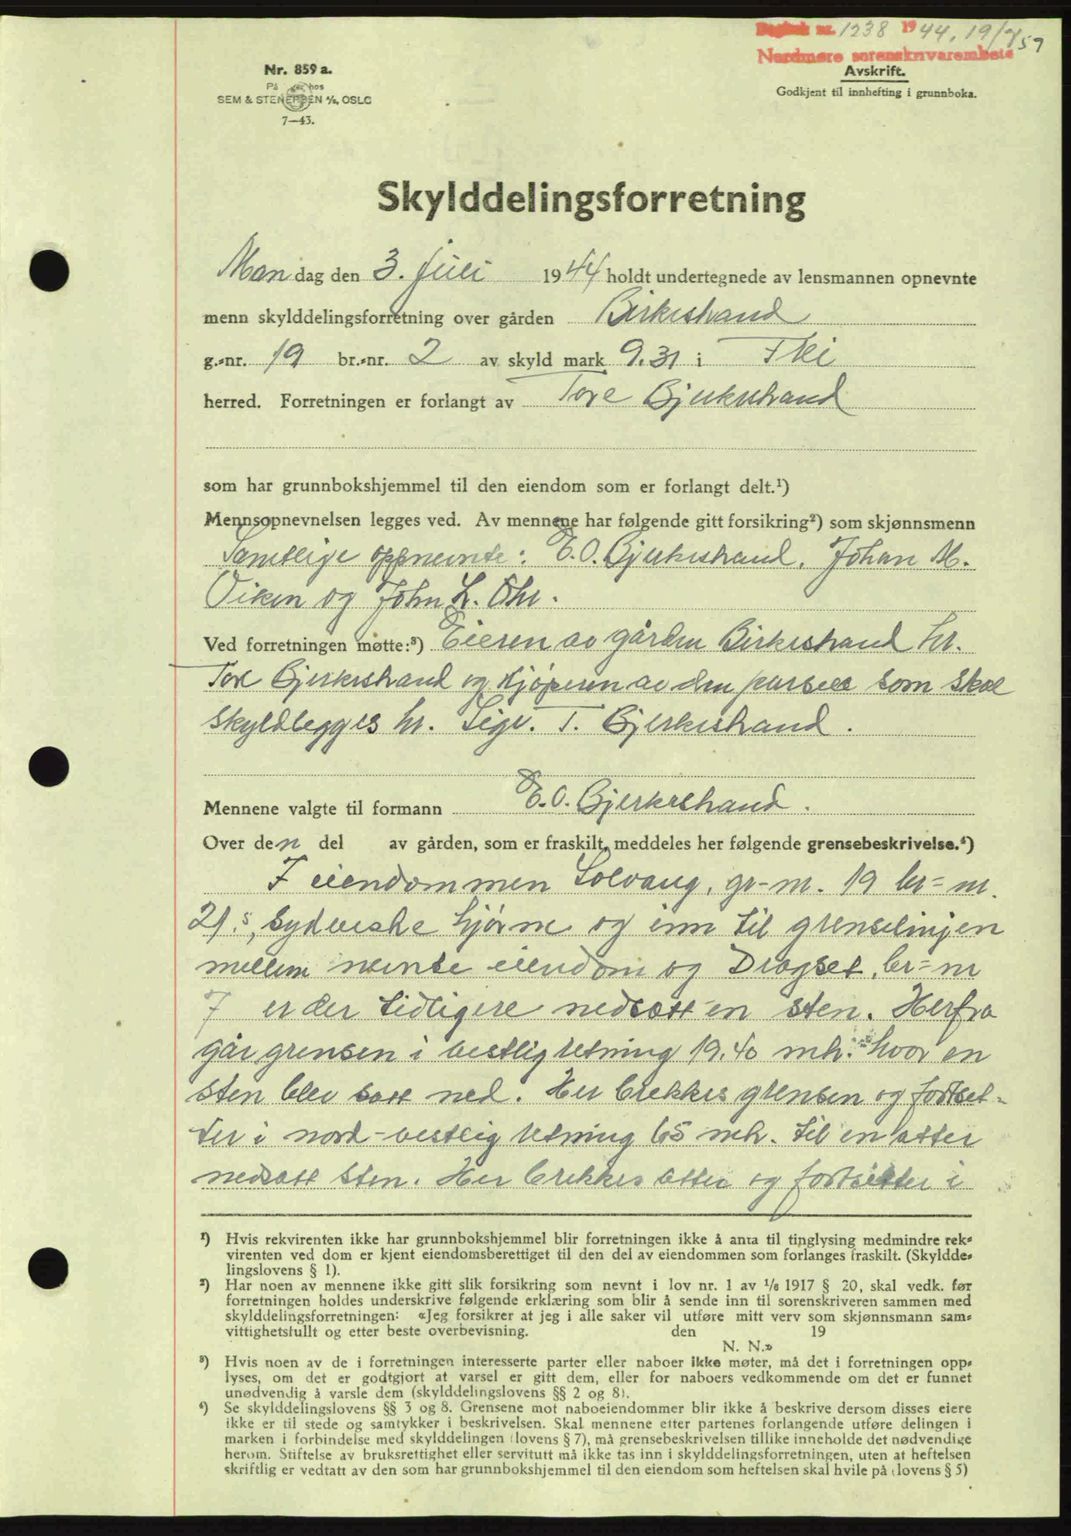 Dagbok nr. 1238 1944, 19/7 59
Nordmøre sorenskriverembete
Nr. 859 a.
På lager hos
SEM & STENERSEN A/S, OSLO
7—43.
Avskrift.
Godkjent til innhefting i grunnboka.
Skylddelingsforretning
Mandag den 3. juli 1944 holdt undertegnede av lensmannen opnevnte
menn skylddelingsforretning over gården Birkestrand
g.-nr. 19 br.-nr. 2 av skyld mark 9.31 i
herred. Forretningen er forlangt av Tore Bjerkestrand
som har grunnbokshjemmel til den eiendom som er forlangt delt.¹)
Mennsopnevnelsen legges ved. Av mennene har følgende gitt forsikring²) som skjønnsmenn
Samtlige oppnevnte: E. O. Bjerkestrand, Johan M.
Viken og John L. Øhr.
Ved forretningen møtte:³) Eieren av gården Birkestrand hr.
Tore Bjerkestrand og kjøperen av den parsell som skal
skyldlegges hr. Sigv. T. Bjerkestrand.
Mennene valgte til formann E. O. Bjerkestrand.
Over den del av gården, som er fraskilt, meddeles her følgende grensebeskrivelse.⁴)
I eiendommen Solvang, gr-nr. 19 br=nr.
21.s, sydveste hjørne og inn til grenselinjen
mellem nevnte eiendom og Dragset, br=nr
7 er der tidligere nedsatt en sten. Herfra
går grensen i vestlig retning 19.40 mtr. hvor en
sten blev satt ned. Her brekkes grensen og fortset-
ter i nord-vestlig retning 65 mtr. til en atter
nedsatt sten. Her brekkes atter og fortsetter i
¹) Hvis rekvirenten ikke har grunnbokshjemmel blir forretningen ikke å anta til tinglysing medmindre rek-
virenten ved dom er kjent eiendomsberettiget til den del av eiendommen som forlanges fraskilt. (Skyldde-
lingslovens § 1).
²) Har noen av mennene ikke gitt slik forsikring som nevnt i lov nr. 1 av 1/6 1917 § 20, skal vedk. før
forretningen holdes underskrive følgende erklæring som blir å sende inn til sorenskriveren sammen med
skylddelingsforretningen: «Jeg forsikrer at jeg i alle saker vil utføre mitt verv som skjønnsmann sam-
vittighetsfullt og etter beste overbevisning. den 19
N. N.»
³) Hvis noen av de i forretningen interesserte parter eller naboer ikke møter, må det i forretningen opp-
lyses, om det er godtgjort at varsel er gitt dem, eller for naboers vedkommende om det er funnet
unødvendig å varsle dem (skylddelingslovens §§ 2 og 8).
⁴) Se skylddelingslovens §§ 3 og 8. Grensene mot naboeiendommer blir ikke å beskrive dersom disses eiere
ikke er til stede og samtykker i beskrivelsen. Skal mennene etter partenes forlangende utføre delingen i
marken i forbindelse med skylddelingen (lovens § 7), må grensebeskrivelsen tillike inneholde det nødvendige
herom. Stiftelse av bruksrettighet eller servitutt må ikke tas inn i skylddelingsforretningen, uten at heftelsen
skriftlig er vedtatt av den som har grunnbokshjemmel til den eiendom som heftelsen skal hvile på (lovens § 5)